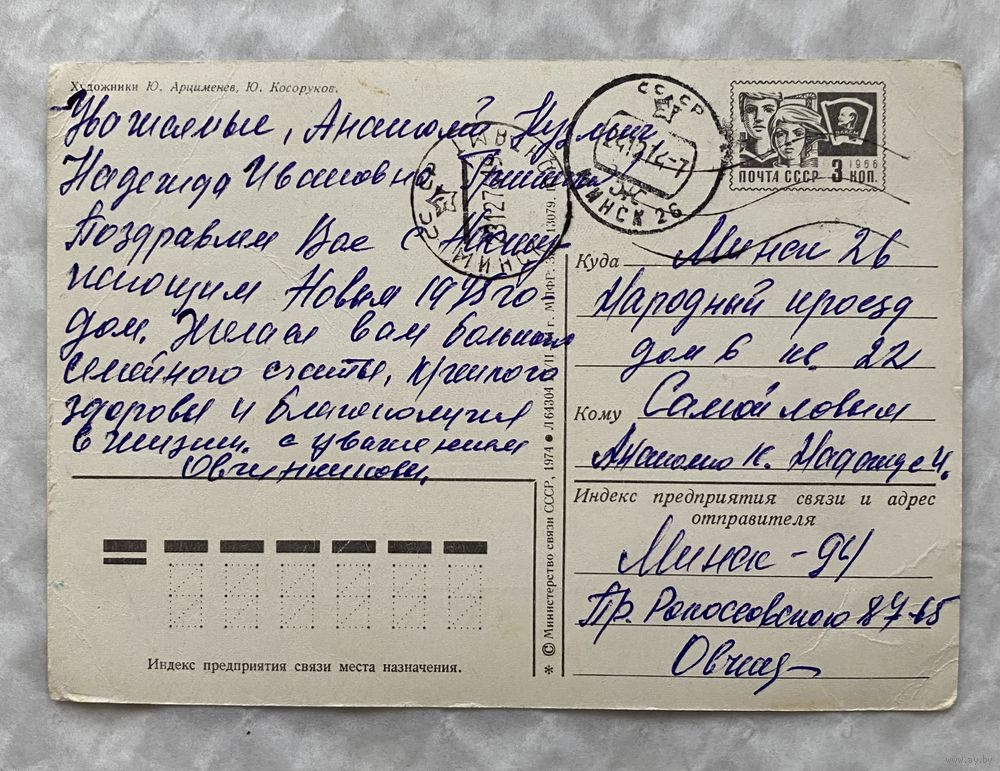 Художники Ю. Арцименев, Ю. Косоруков.
Уважаемые, Анатолий Кузьмич
Надежда Ивановна
Поздравляем Вас с Насту-
пающим Новым 1975 го
дом. Желаем вам большого
семейного счастья, крепкого
здоровья и благополучия
в жизни. с уважением
Овчинниковы.
Индекс предприятия связи места назначения.
* © Министерство связи СССР, 1974 ● Л 64304
13079.
СССР
МИНСК
СССР
МИНСК 26
ВЛКСМ
1966
ПОЧТА СССР 3 КОП.
Куда Минск 26
Народный проезд
дом 6 кв. 22
Кому Самойловым
Анатолию К. Надежде И.
Индекс предприятия связи и адрес
отправителя
Минск - 94
Пр. Рокоссовского 87-65
Овчин
www.ay.by